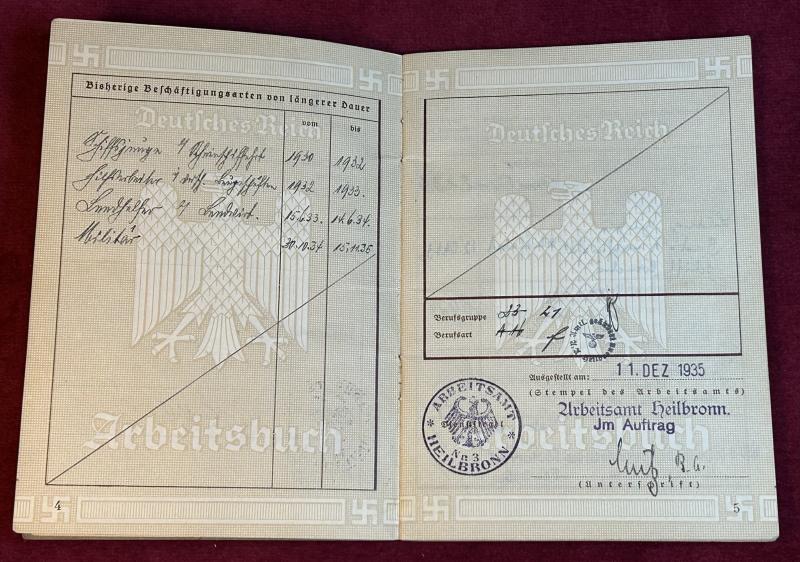 Bisherige Beschäftigungsarten von längerer Dauer
Deutsches Reich
vom bis
Schiffsjunge 1930 1932
Hilfsarbeiter 1932 1933.
Landhelfer Landwirt. 15.6.33. 14.6.34.
Militär 30.10.34 15.11.35
Arbeitsbuch
4
Deutsches Reich
Berufsgruppe 21
Berufsart
Ausgestellt am: 11. DEZ 1935
(Stempel des Arbeitsamts)
Arbeitsamt Heilbronn.
Jm Auftrag
ARBEITSAMT
Dienstsiegel
HEILBRONN
Nr 3
Arbeitsbuch
(Unterschrift)
5